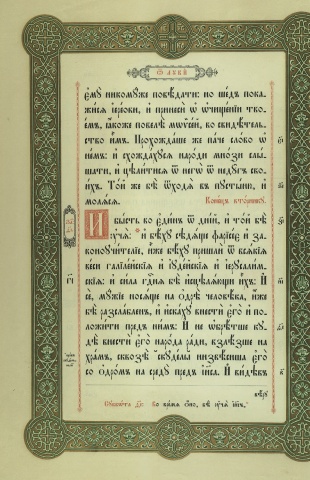 Ѿ ЛꙋКИ
є҆мꙋ̀ никомꙋ́же повѣ́дати: но ше́дъ пока-
жи́сѧ і҆ере́ови, и҆ принесѝ ѡ҆ ѡ҆чище́нїи тво-
е́мъ, ꙗ҆́коже повелѣ̀ мѡѷсе́й, во свидѣ́тель-
ство и҆̀мъ. Прохожда́ше же па́че сло́во ѡ҆
не́мъ: и҆ схожда́хꙋсѧ наро́ди мно́зи слы́-
шати, и҆ цѣли́тисѧ ѿ негѡ̀ ѿ недꙋ́гъ сво-
и́хъ. То́й же бѣ̀ ѿходѧ̀ въ пꙋсты́ню, и҆
молѧ́сѧ. Коне́цъ вто́рникꙋ.
И҆ бы́сть во є҆ди́нъ ѿ дні́й, и҆ то́й бѣ̀
ᲂу҆чѧ̀: и҆ бѣ́хꙋ сѣдѧ́ще фарїсе́є и҆ за-
коноꙋчи́телїе, и҆̀же бѣ́хꙋ пришлѝ ѿ всѧ́кїѧ
ве́си галїле́йскїѧ и҆ і҆ꙋде́йскїѧ и҆ і҆ерꙋсали́м-
скїѧ: и҆ си́ла гд҇нѧ бѣ̀ и҆сцѣлѧ́ющи и҆̀хъ: И҆
сѐ, мꙋ́жїе носѧ́ще на ѻ҆дрѣ̀ человѣ́ка, и҆́же
бѣ̀ разсла́бленъ, и҆ и҆ска́хꙋ внестѝ є҆го̀ и҆ по-
ложи́ти пред̾ ни́мъ: И҆ не ѡ҆брѣ́тше кꙋ-
дѣ̀ внестѝ є҆го̀ наро́да ра́ди, взлѣ́зше на
хра́мъ, сквозѣ̀ скꙋде́ль низвѣ́сиша є҆го̀
со ѻ҆дро́мъ на средꙋ̀ пред̾ і҆и҃са. И҆ ви́дѣвъ
вѣ́рꙋ